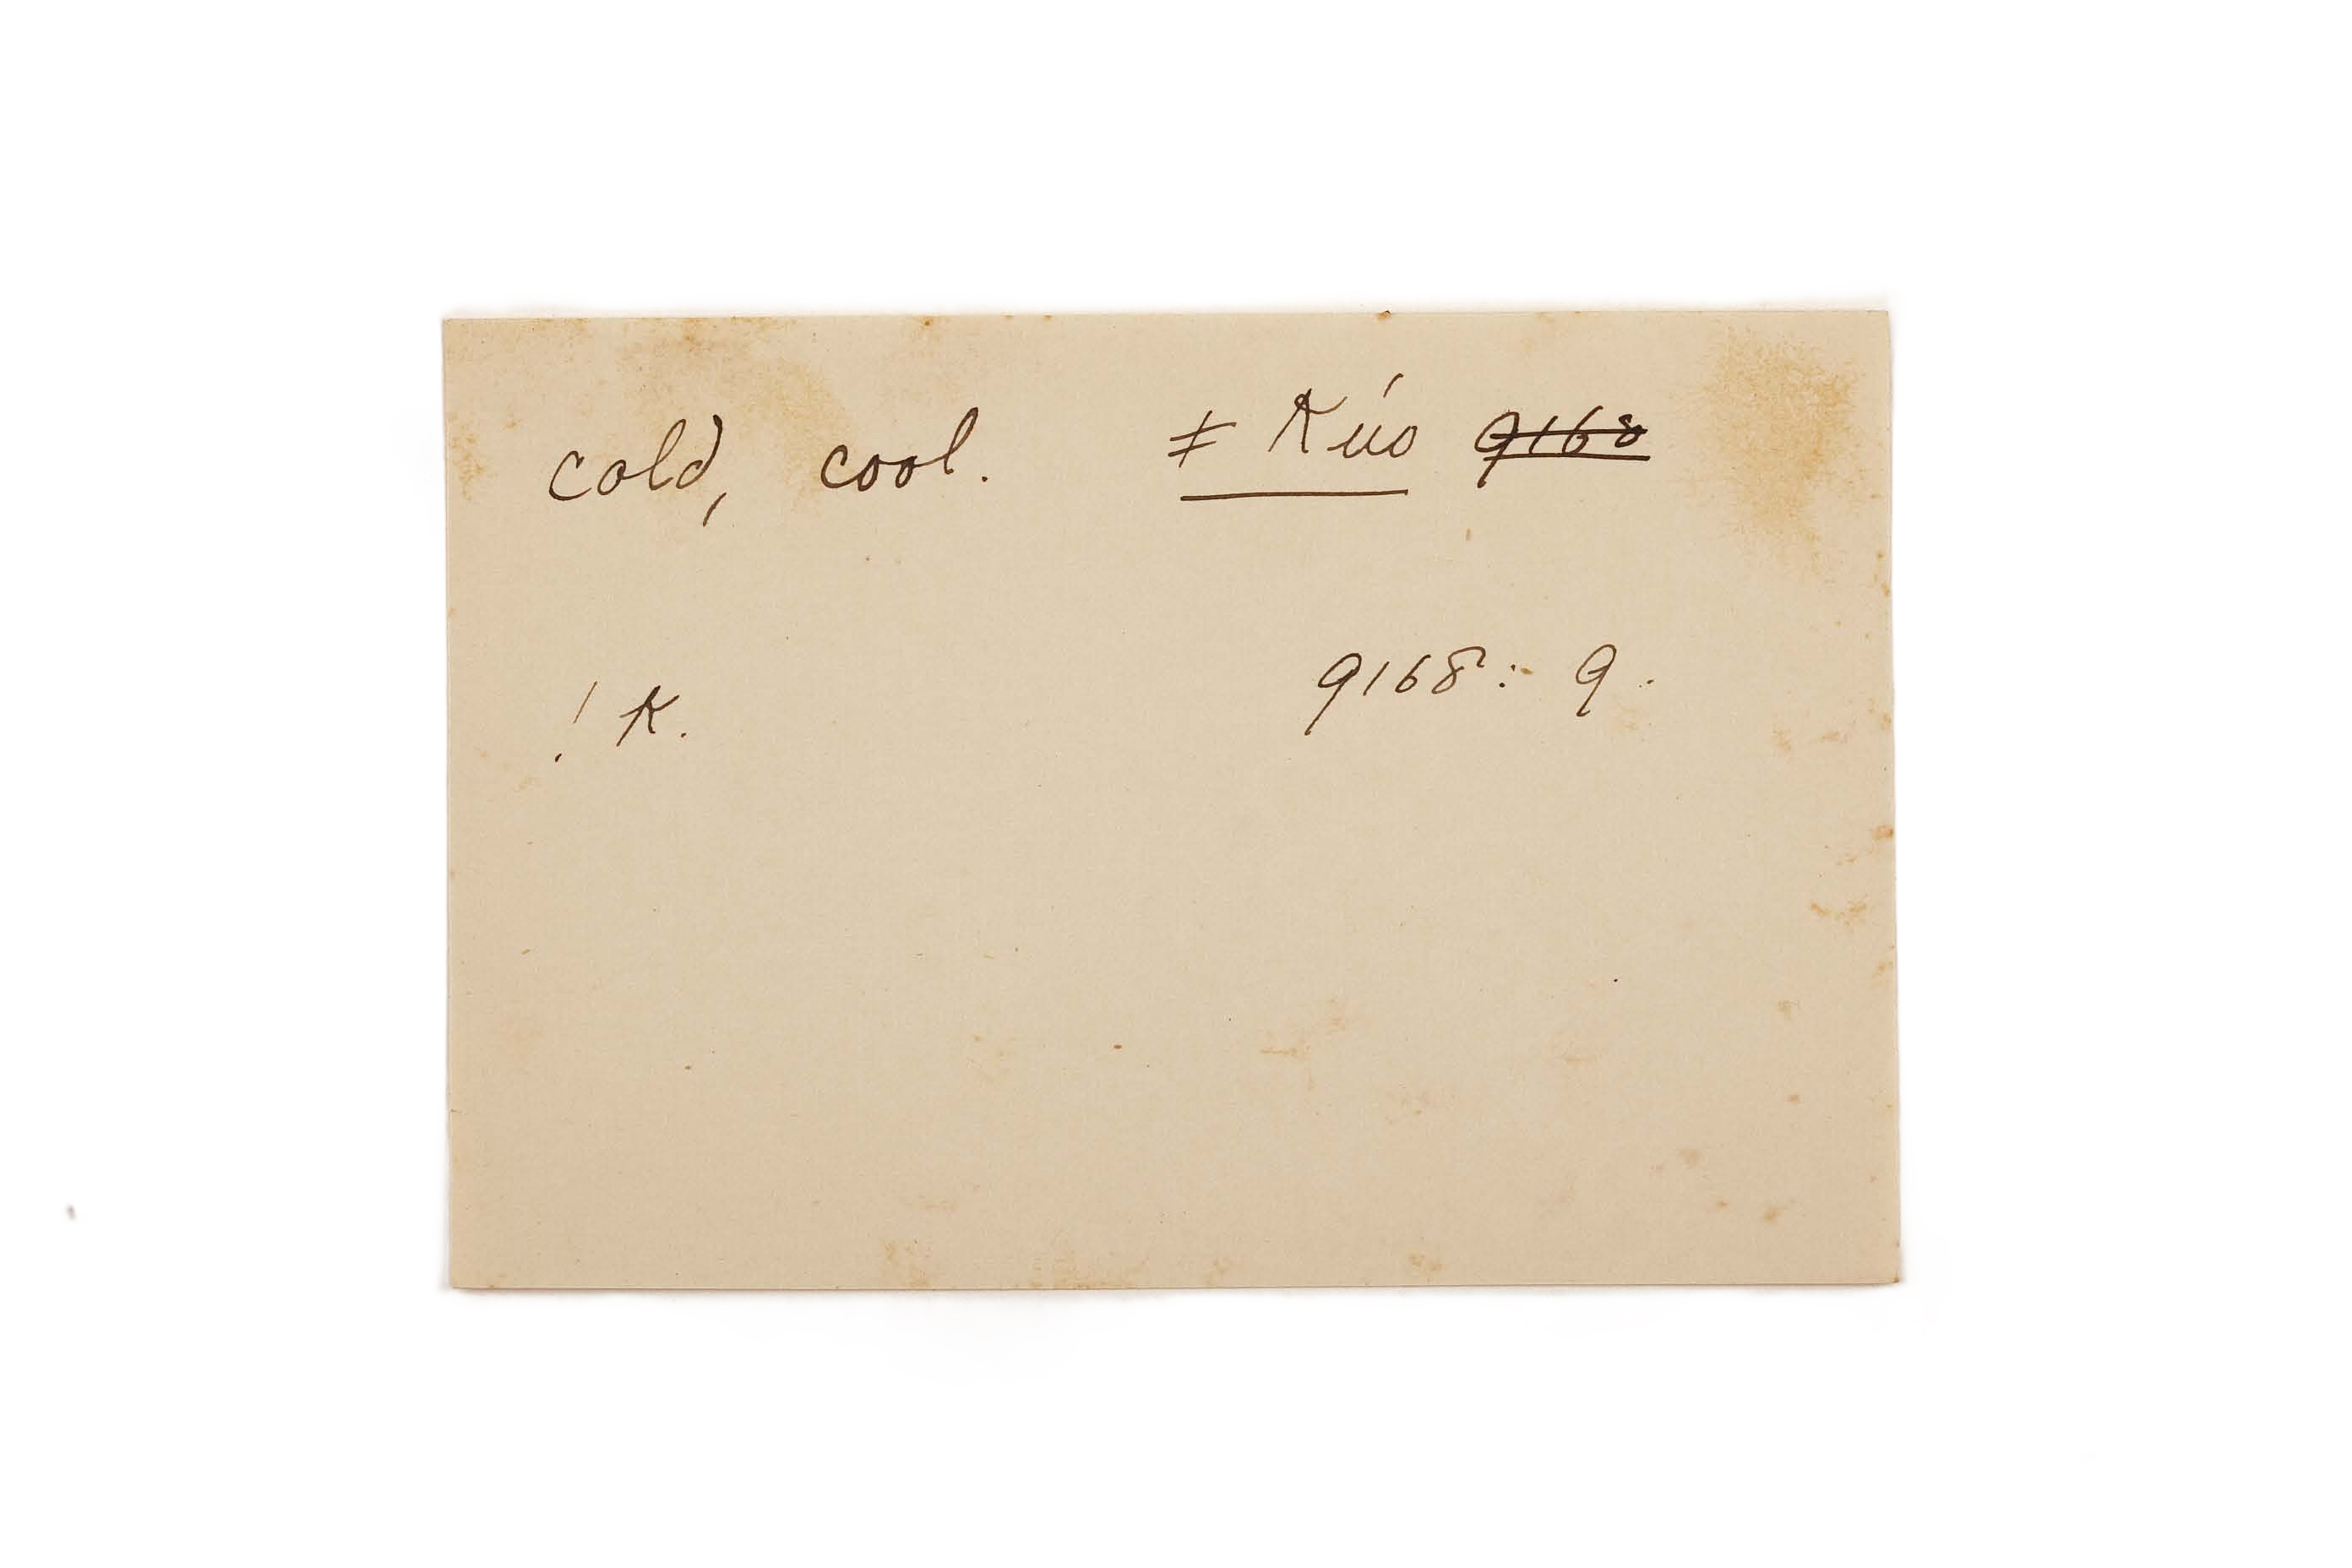 cold, cool. ǂ kúo 9168
! k. 9168: 9.